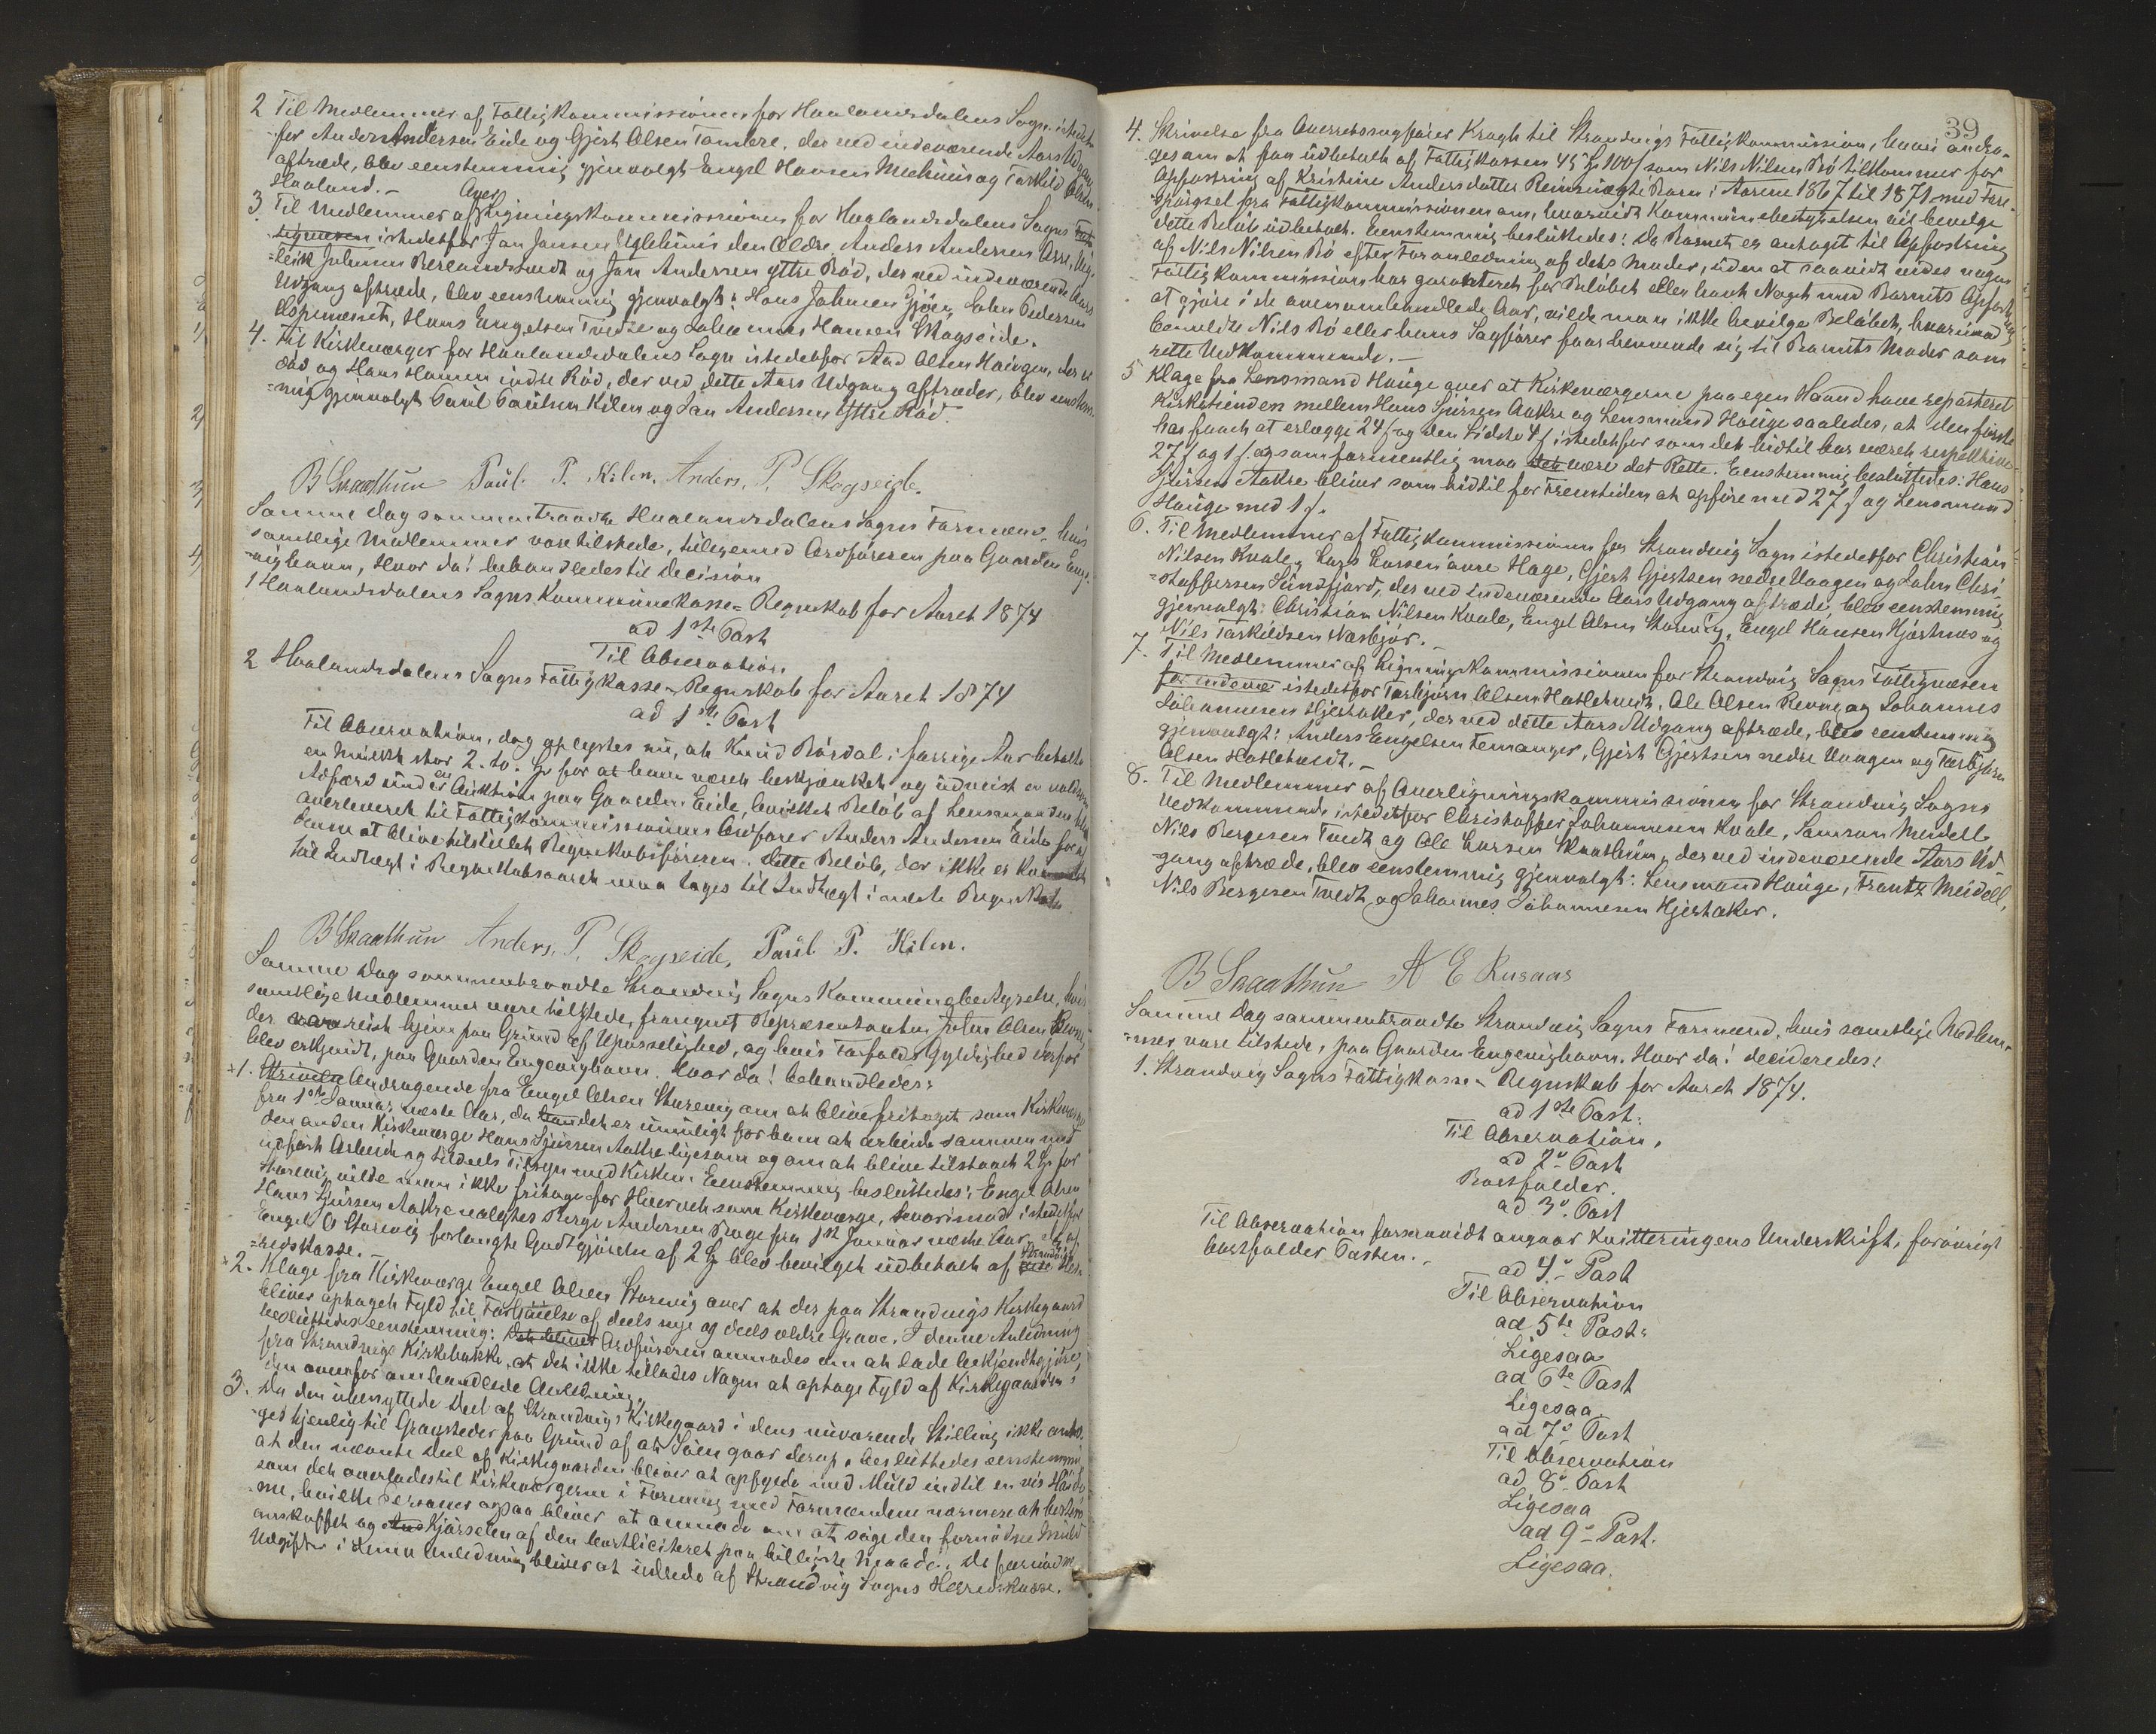 2 Til Medlemmer af Fattigkommissionen for Haalandsdalens Sogn istedet-
for Anders Andersen Eide og Gjert Olsen Tombre, der ved indeværende Aars Udgang
aftræde, blev eenstemmig gjenvalgt Engel Hansen Mehuus og Tarkild Olsen
Haaland.-
Over
3 Til Medlemmer af Ligningskommissionen for Haalandsdalens Sogns
istedetfor Jan Jansen Uglehuus den Ældre, Anders Andersen
Johnsen Berlandstvedt og Jan Andersen yttre Rød, der ved indeværende Aars
Udgang aftræde, blev eenstemmig gjenvalgt: Hans Johnsen Gjøn, John Pedersen
Hans Engelsen Tvedte og Johannes Hansen Skogseide.
4. Til Kirkeværger for Haalandsdalens Sogn istedetfor Aad Olsen Haugen, der er
død og Hans Hansen indre Rød, der ved dette Aars Udgang aftræder, blev eenstem-
mig gjenvalgt Paul Paulsen Kilen og Jan Andersen Yttre Rød.
B Skaathun Paul P. Kilen. Anders. P. Skogseide.
Samme dag sammentraadte Haalandsdalens Sogns Formænd, hvis
samtlige Medlemmer vare tilstede, tilligemed Ordføreren paa Gaarden Enge-
vighavn, Hvor da! behandledes til Decision
1 Haalandsdalens Sogns Kommunekasse-Regnskab for Aaret 1874
ad 1ste Post
Til Observation.
2 Haalandsdalens Sogns Fattigkasse-Regnskab for Aaret 1874
ad 1ste Post
Til Observation, dog oplystes nu, at Knud Rørdal i forrige Aar betalte
en Mulkt stor 2. to. Spd for at have været beskjænket og udvist en voldsom
Adfærd under en Auktion paa Gaarden Eide, hvilket Beløb af Lensmanden
overleveret til Fattigkommissionens Ordfører Anders Andersen Eide for af
denne at blive tilstillet Regnskabsføreren. Dette Beløb, der ikke er kommet
til Indtægt i Regnskabsaaret maa tages til Indtægt i næste Regnskab
B Skaathun Anders. P. Skogseide, Paul P. Kilen.
Samme Dag sammentraadte Strandvig Sogns Kommunebestyrelse, hvis
samtlige Medlemmer vare tilstede, fraregnet Repræsentanten John Olsen Revne,
der vare reist hjem paa Grund af Upasselighed, og hvis Forfalds Gyldighed derfor
blev erkjendt, paa Gaarden Engevighavn. Hvor da! behandledes:
1. Skrivelse Andragende fra Engel Olsen Storevig om at blive fritaget som Kirkeværge
fra 1ste Januar næste Aar, da det er umuligt for ham at arbeide sammen med
den anden Kirkeværge Hans Sjursen Aakre ligesom og om at blive tilstaaet 2 Spd for
udført Arbeide og tildeels Tilsyn med Kirken. Eenstemmig besluttedes: Engel Olsen
Storevig vilde man ikke fritage for Hvervet som Kirkeværge, hvorimod istedetfor
Hans Sjursen Aakre valgtes Berge Andersen Drage fra 1st Januar næste Aar
Engel O Storevig forlangte Godtgjørelse af 2 Spd blev bevilget udbetalt af Strandvigs Her-
redskasse.-
2. Klage fra Kirkeværge Engel Olsen Storevig over at der paa Strandvigs Kirkegaard
bliver optaget Fyld til Forhøielse af deels nye og deels ældre Grave. I denne Anledning
besluttedes eenstemmig: Ordføreren anmodes om at lade bekjendtgjøre,
fra Strandvigs Kirkebakke, at det ikke tillades Nogen at optage Fyld af Kirkegaarden i
den ovenfor omhandlede Anledning.
3. Da den ubenyttede Deel af Strandvigs Kirkegaard i dens nuværende Stilling ikke
tjenlig til Gravsteder paa Grund af at Søen gaar derop, besluttedes eenstemmig
at den nævnte Deel af Kirkegaarden bliver at opfyde med Muld indtil en vis Høide
som det overlades til Kirkeværgerne i Forening med Formændene nærmere at bestem-
me, hvilke Personer ogsaa bliver at anmode om at søge den fornødne Muld
anskaffet og Kjørselen af den bortliciteret paa billigste Maade. De fornødne
Udgifter i denne Anledning bliver at udrede af Strandvig Sogns Herredskasse.
39
4. Skrivelse fra Overretssagfører Kragh til Strandvigs Fattigkommission, hvori andra-
ges om at faa udbetalt af Fattigkassen 45 Spd 100 s som Nils Nilsen Bø tilkommer for
Opfostring af Kristine Andersdatter uægte Barn i Aarene 1867 til 1871 med Fore-
spørgsel fra Fattigkommissionen om, hvorvidt Kommunebestyrelsen vil bevilge
dette Beløb udbetalt. Eenstemmig besluttedes: Da Barnet er antaget til Opfostring
af Nils Nilsen Bø efter Foranledning af dets Moder, uden at saavidt vides nogen
Fattigkommission har garanteret for Beløbet eller havt Noget med Barnets Opfostring
at gjøre i de ovenomhandlede Aar, vilde man ikke bevilge Beløbet, hvorimod
bemeldte Nils Bø eller hans Sagfører faar henvende sig til Barnets Moder som
rette Vedkommende.-
5 Klage fra Lensmand Hauge over at Kirkeværgerne paa egen Haand have reparteret
Kirketienden mellem Hans Sjursen Aakre og Lensmand Hauge saaledes, at den første
har faaet at erlægge 24 s og den sidste 4 s istedetfor som det hidtil har været respektive
27 s og 1 s. og som formentlig maa være det Rette. Eenstemmig besluttedes: Hans
Sjursen Aakre bliver som hidtil for Fremtiden at opføre med 27 s og Lensmand
Hauge med 1 s.
6. Til Medlemmer af Fattigkommissionen for Strandvig Sogn istedetfor Christian
Nilsen Kvale, Lars Larsen øvre Hage, Gjert Gjertsen nedre Vaagen og John Chri-
stoffersen Sundfjord, der ved indeværende Aars Udgang aftræde, blev eenstemmig
gjenvalgt: Christian Nilsen Kvale, Engel Olsen Storevig, Engel Hansen Hjartnæs og
Nils Tarkildsen
7. Til Medlemmer af Ligningskommissionen for Strandvig Sogns Fattigvæsen
for indevæ istedetfor Torbjørn Olsen Hatletvedt, Ole Olsen Revne og Johannes
Johannesen Hjertaker, der ved dette Aars Udgang aftræde, blev eenstemmig
gjenvalgt: Anders Engelsen Temanger, Gjert Gjertsen nedre Vaagen og Torbjørn
Olsen Hatletvedt.-
8. Til Medlemmer af Overligningskommissionen for Strandvig Sogns
Vedkommende istedetfor Christoffer Johannesen Kvale, Samson Meidell
Nils Bergesen Tvedt og Ole Larsen Skaathun, der ved indeværende Aars Ud-
gang aftræde, blev eenstemmig gjenvalgt: Lensmand Hauge, Frantz Meidell,
Nils Bergesen Tvedt og Johannes Johannesen Hjertaker.
B Skaathun A E Rusaas
Samme dag sammentraadte Strandvig Sogns Formænd, hvis samtlige Medlem-
mer vare tilstede, paa Gaarden Engevighavn. Hvor da! decideredes:
1. Strandvig Sogns Fattigkasse-Regnskab for Aaret 1874.
ad 1ste Post.
Til Observation.
ad 2. Post
Bortfalder.
ad 3. Post
Til Observation forsaavidt angaar Kvitteringens Underskrift, forøvrigt
bortfalder Posten.-
ad 4. Post
Til Observation
ad 5te Post.
Ligesaa
ad 6te Post
Ligesaa.
ad 7. Post
Til Observation
ad 8. Post
Ligesaa
ad 9. Post.
Ligesaa.